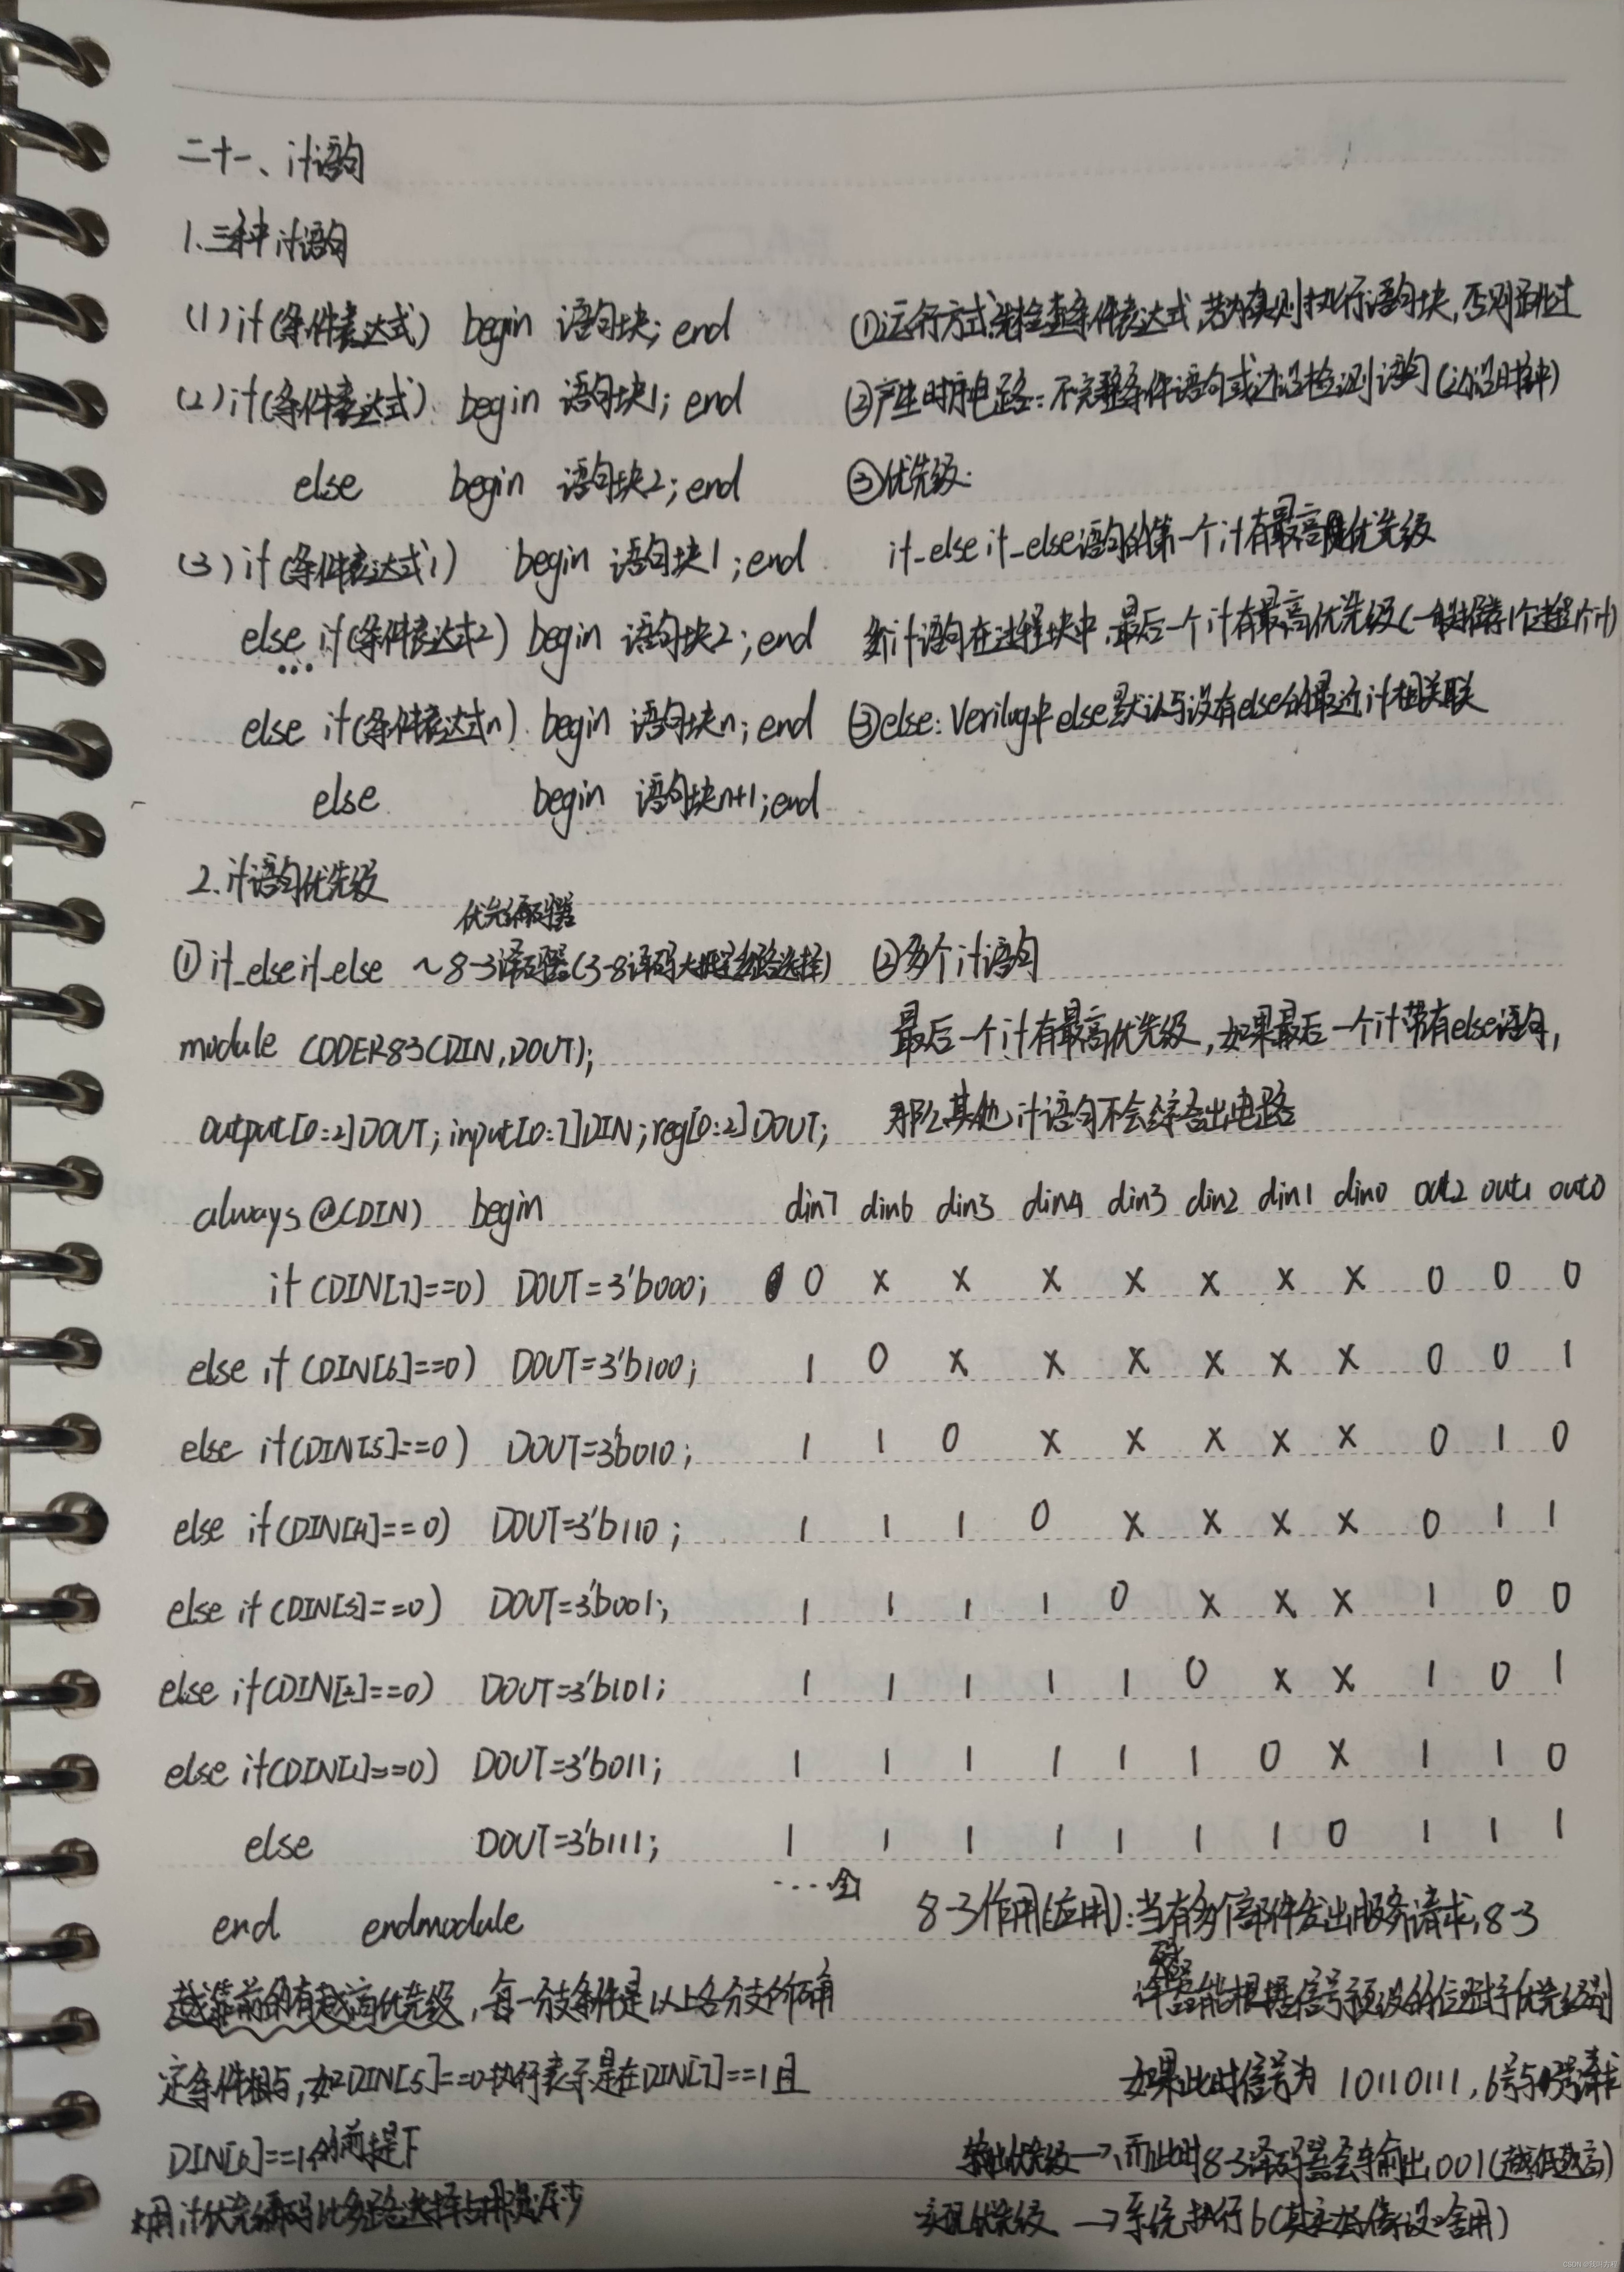 二十一、if语句
1.三种if语句
(1)if(条件表达式) begin 语句块;end
(2)if(条件表达式) begin 语句块1;end
else begin 语句块2;end
(3)if(条件表达式1) begin 语句块1;end
else if(条件表达式2) begin 语句块2;end
...
else if(条件表达式n) begin 语句块n;end
else begin 语句块n+1;end
①运行方式:先检查条件表达式,若为真则执行语句块,否则跳过
②产生时序电路:不完整条件语句或边沿检测语句(边沿时钟)
③优先级:
if_else if_else语句的第一个if有最高优先级
多if语句在过程块中,最后一个if有最高优先级(一般推荐1个过程1个if)
③else:Verilog中else默认与没有else的最近if相关联
2.if语句优先级
优先编码器
①if_else if_else ~8-3译码器(3-8译码大概是多路选择)
module CODER83(DIN,DOUT);
output[0:2]DOUT;input[0:7]DIN;reg[0:2]DOUT;
always@(DIN) begin
if(DIN[7]==0) DOUT=3'b000;
else if(DIN[6]==0) DOUT=3'b100;
else if(DIN[5]==0) DOUT=3'b010;
else if(DIN[4]==0) DOUT=3'b110;
else if(DIN[3]==0) DOUT=3'b001;
else if(DIN[2]==0) DOUT=3'b101;
else if(DIN[1]==0) DOUT=3'b011;
else DOUT=3'b111;
end endmodule
越靠前的有越高优先级,每一分支条件是以上各分支的确
定条件相与,如DIN[5]==0执行表示是在DIN[7]==1且
DIN[6]==1的前提下
*用if优先编码比多路选择
②多个if语句
最后一个if有最高优先级,如果最后一个if带有else语句,
那么其他if语句不会综合出电路
din7 din6 din3 din4 din3 din2 din1 din0 out2 out1 out0
0 x x x x x x x 0 0 0
1 0 x x x x x x 0 0 1
1 1 0 x x x x x 0 1 0
1 1 1 0 x x x x 0 1 1
1 1 1 1 0 x x x 1 0 0
1 1 1 1 1 0 x x 1 0 1
1 1 1 1 1 1 0 x 1 1 0
1 1 1 1 1 1 1 0 1 1 1
....全1
8-3作用(应用):当有多个部件发出服务请求,8-3
译码器能根据信号预设的优先级别
如果此时信号为 10110111,6号与
输出优先级→,而此时8-3译码器会输出001(越低越高)
实现优先级 →系统执行6
CSDN